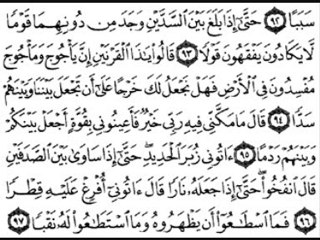 سَبَبًا ٩٢ حَتَّىٰٓ إِذَا بَلَغَ بَيْنَ ٱلسَّدَّيْنِ وَجَدَ مِن دُونِهِمَا قَوْمًا
لَّا يَكَادُونَ يَفْقَهُونَ قَوْلًا ٩٣ قَالُوا۟ يَٰذَا ٱلْقَرْنَيْنِ إِنَّ يَأْجُوجَ وَمَأْجُوجَ
مُفْسِدُونَ فِى ٱلْأَرْضِ فَهَلْ نَجْعَلُ لَكَ خَرْجًا عَلَىٰٓ أَن تَجْعَلَ بَيْنَنَا وَبَيْنَهُمْ
سَدًّا ٩٤ قَالَ مَا مَكَّنِّى فِيهِ رَبِّى خَيْرٌ فَأَعِينُونِى بِقُوَّةٍ أَجْعَلْ بَيْنَكُمْ
وَبَيْنَهُمْ رَدْمًا ٩٥ ءَاتُونِى زُبَرَ ٱلْحَدِيدِ حَتَّىٰٓ إِذَا سَاوَىٰ بَيْنَ ٱلصَّدَفَيْنِ
قَالَ ٱنفُخُوا۟ حَتَّىٰٓ إِذَا جَعَلَهُۥ نَارًا قَالَ ءَاتُونِىٓ أُفْرِغْ عَلَيْهِ قِطْرًا
٩٦ فَمَا ٱسْطَٰعُوٓا۟ أَن يَظْهَرُوهُ وَمَا ٱسْتَطَٰعُوا۟ لَهُۥ نَقْبًا ٩٧